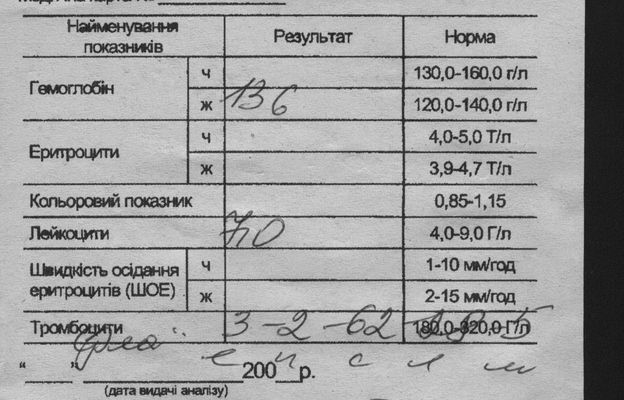 Найменування показників Результат Норма
Гемоглобін ч 130,0-160,0 г/л
ж 136 120,0-140,0 г/л
Еритроцити ч 4,0-5,0 Т/л
ж 3,9-4,7 Т/л
Кольоровий показник 0,85-1,15
Лейкоцити 7,0 4,0-9,0 Г/л
Швидкість осідання еритроцитів (ШОЕ) ч 1-10 мм/год
ж 2-15 мм/год
Тромбоцити 3-2-62-28-5 180,0-320,0 Г/л
е п с л м
“___” ____________ 200__р.
(дата видачі аналізу)